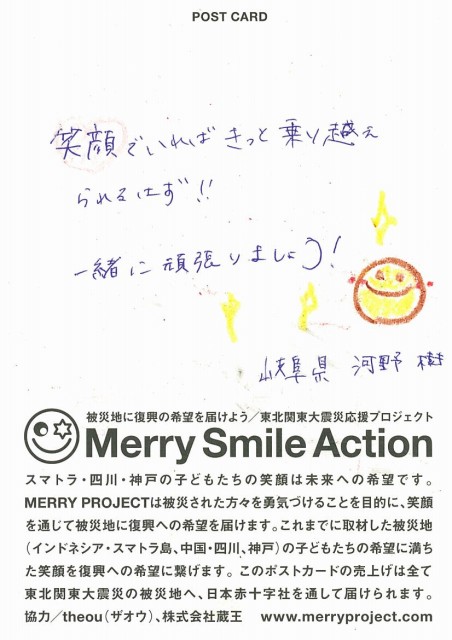 POST CARD
笑顔でいればきっと乗り越え
られるはず!!
一緒に頑張りましょう!
岐阜県 河野 樹
被災地に復興の希望を届けよう/東北関東大震災応援プロジェクト
Merry Smile Action
スマトラ・四川・神戸の子どもたちの笑顔は未来への希望です。
MERRY PROJECTは被災された方々を勇気づけることを目的に、笑顔
を通じて被災地に復興への希望を届けます。これまでに取材した被災地
(インドネシア・スマトラ島、中国・四川、神戸)の子どもたちの希望に満ち
た笑顔を復興への希望に繋げます。このポストカードの売上げは全て
東北関東大震災の被災地へ、日本赤十字社を通して届けられます。
協力/theou(ザオウ)、株式会社蔵王 www.merryproject.com